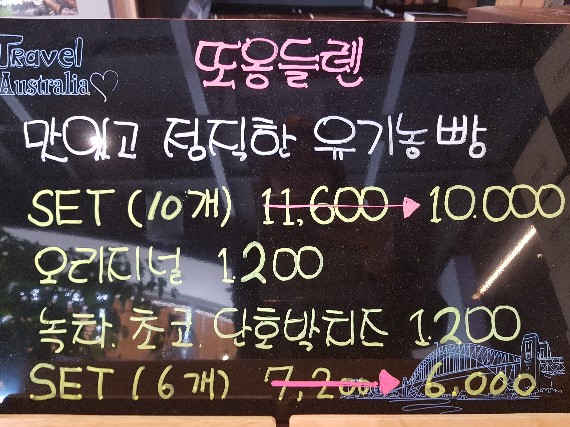 Travel
Australia
또옹들렌
맛있고 정직한 유기농빵
SET (10개) 11,600 → 10.000
오리지널 1.200
녹차. 초코. 단호박치즈 1.200
SET (6개) 7,200 → 6,000